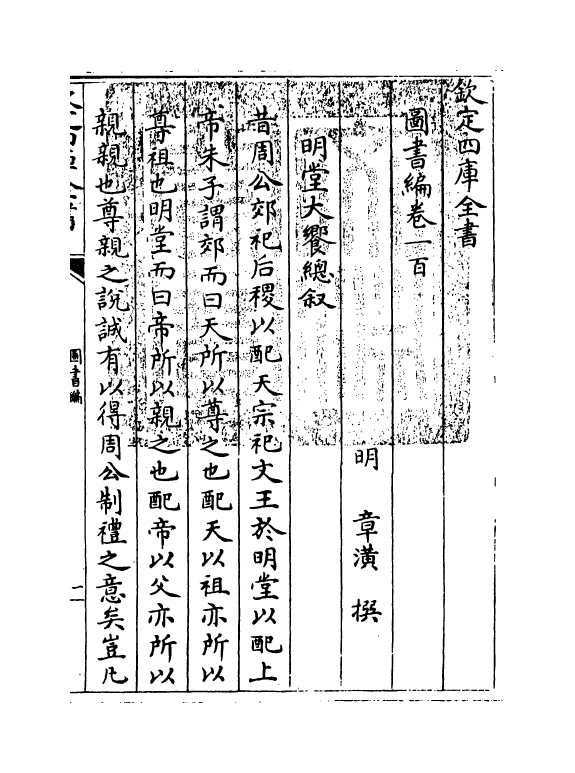 欽定四庫全書
圖書編卷一百
明 章潢 撰
明堂大饗總叙
昔周公郊祀后稷以配天宗祀文王於明堂以配上
帝朱子謂郊而曰天所以尊之也配天以祖亦所以
尊祖也明堂而曰帝所以親之也配帝以父亦所以
親親也尊親之說誠有以得周公制禮之意矣豈凡
圖書編
一